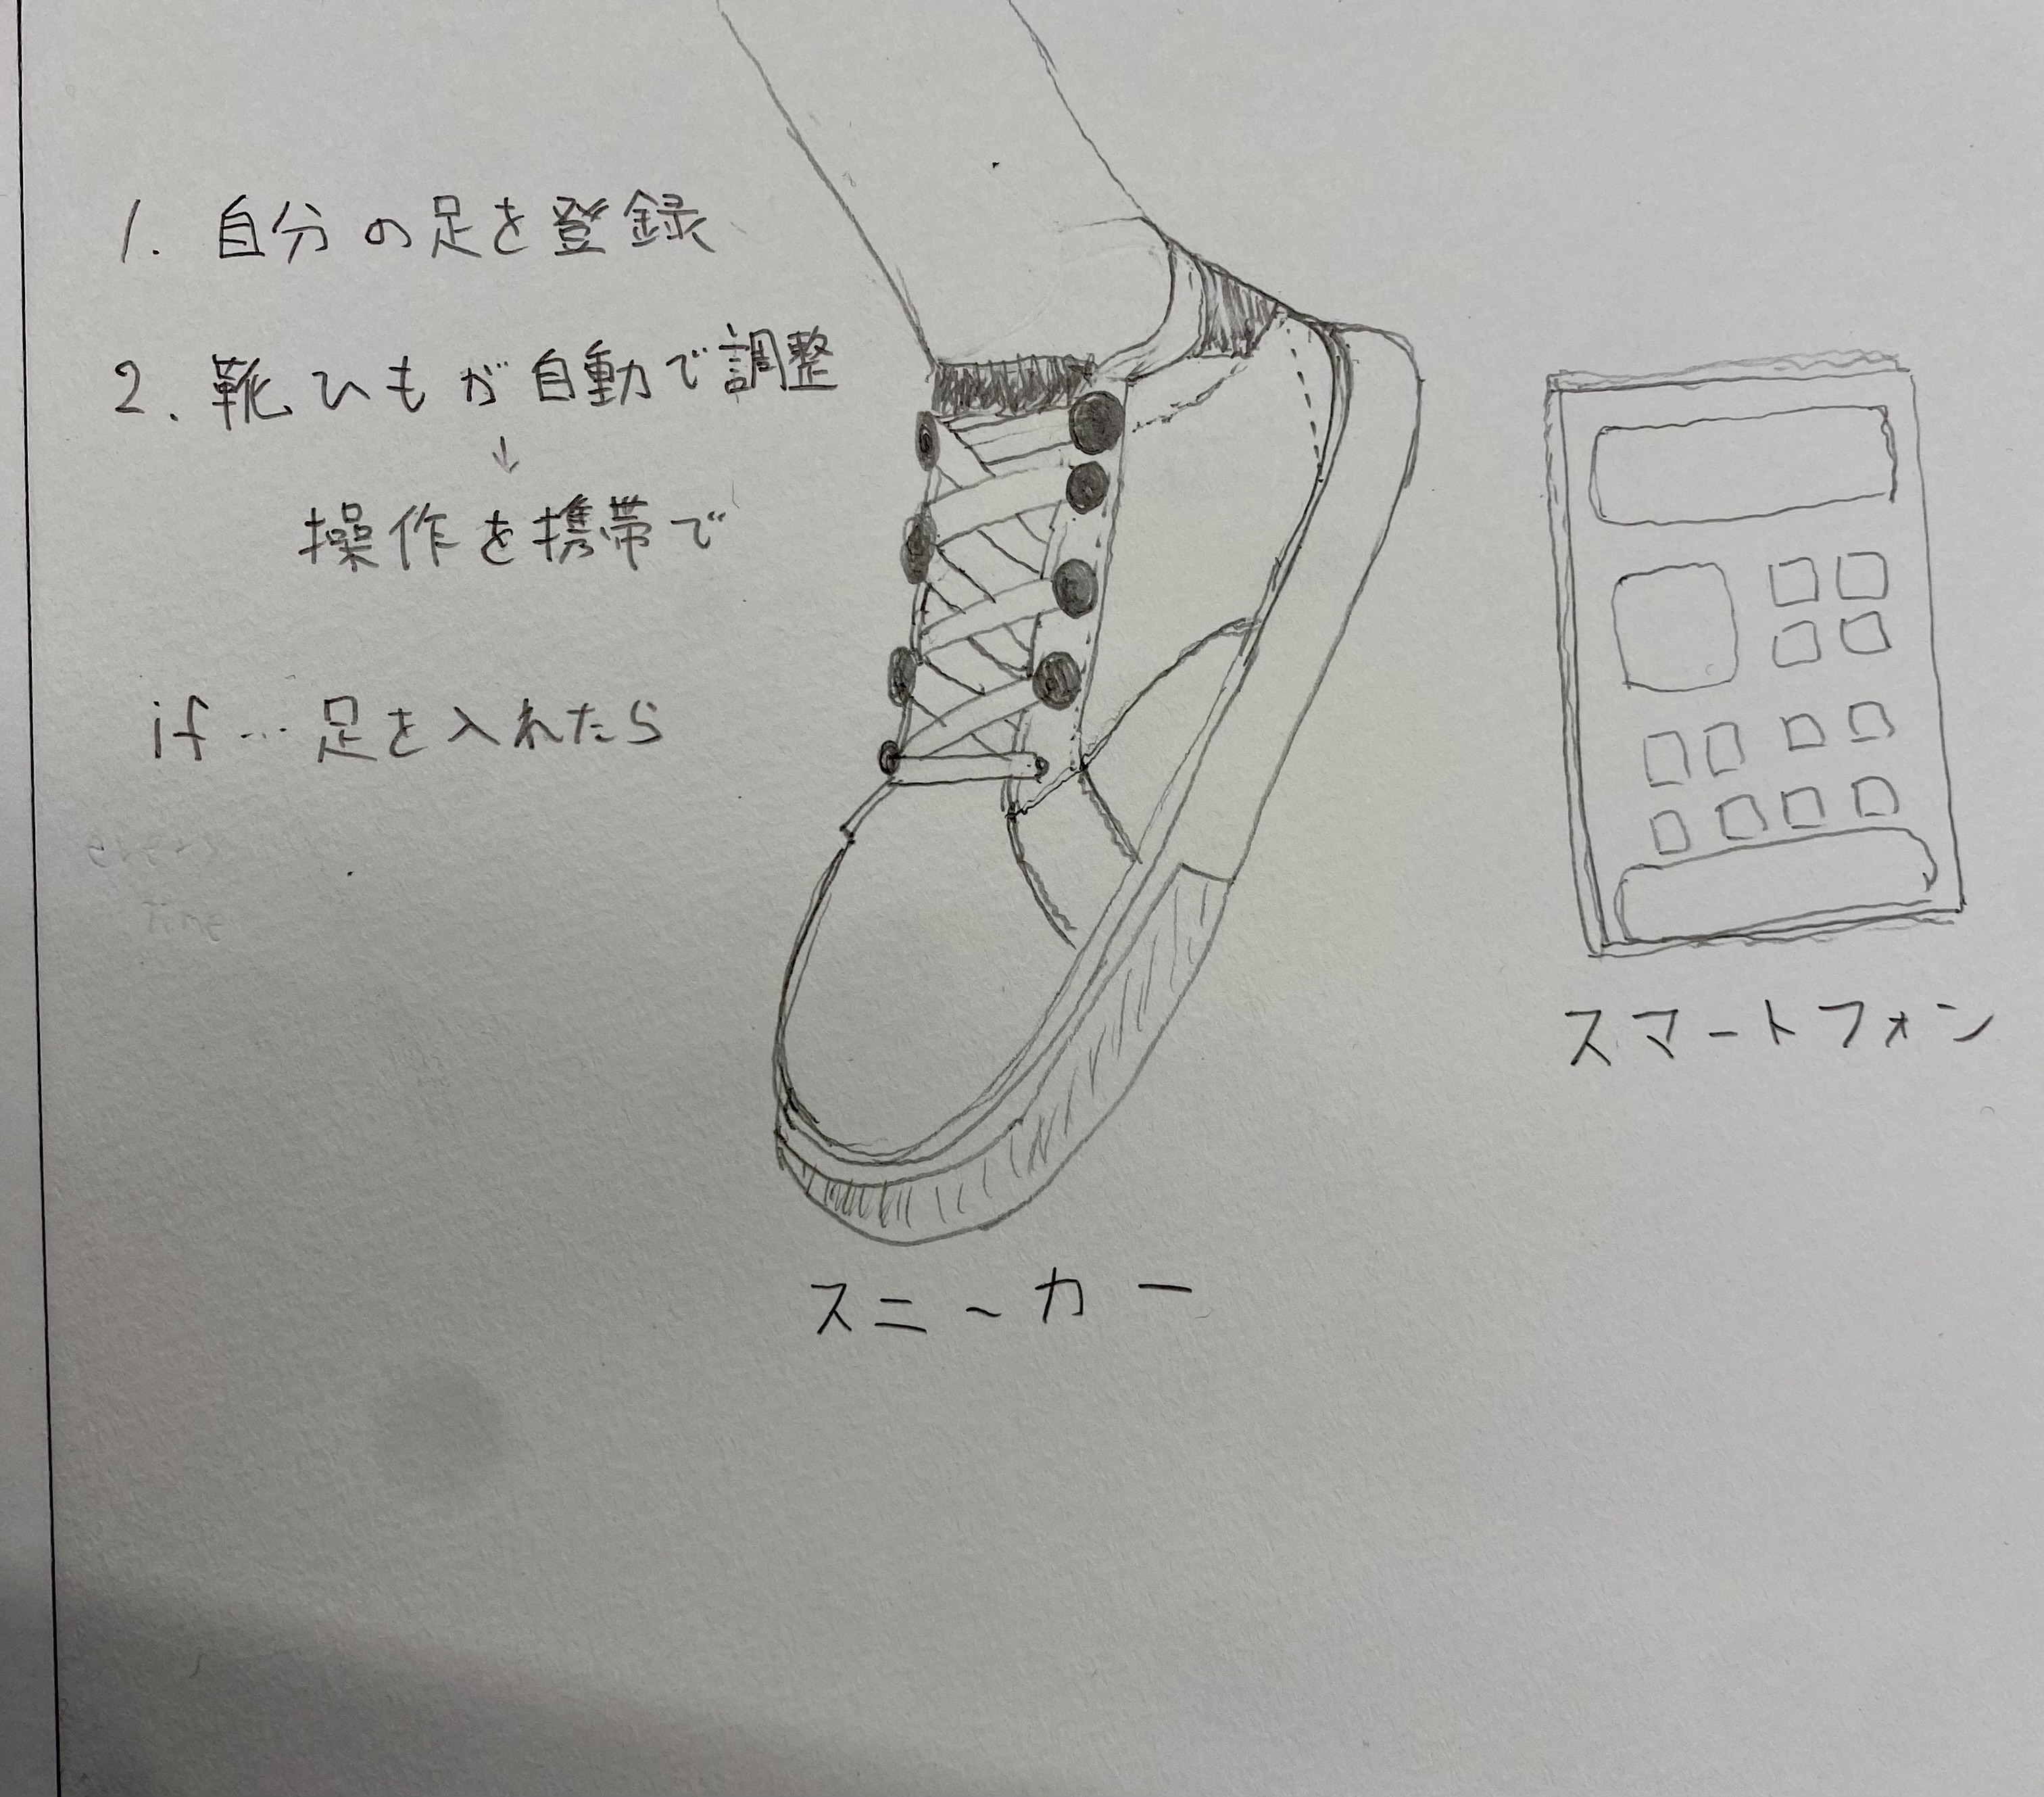 1. 自分の足を登録
2. 靴ひもが自動で調整
↓
操作を携帯で
if…足を入れたら
スニーカー
スマートフォン